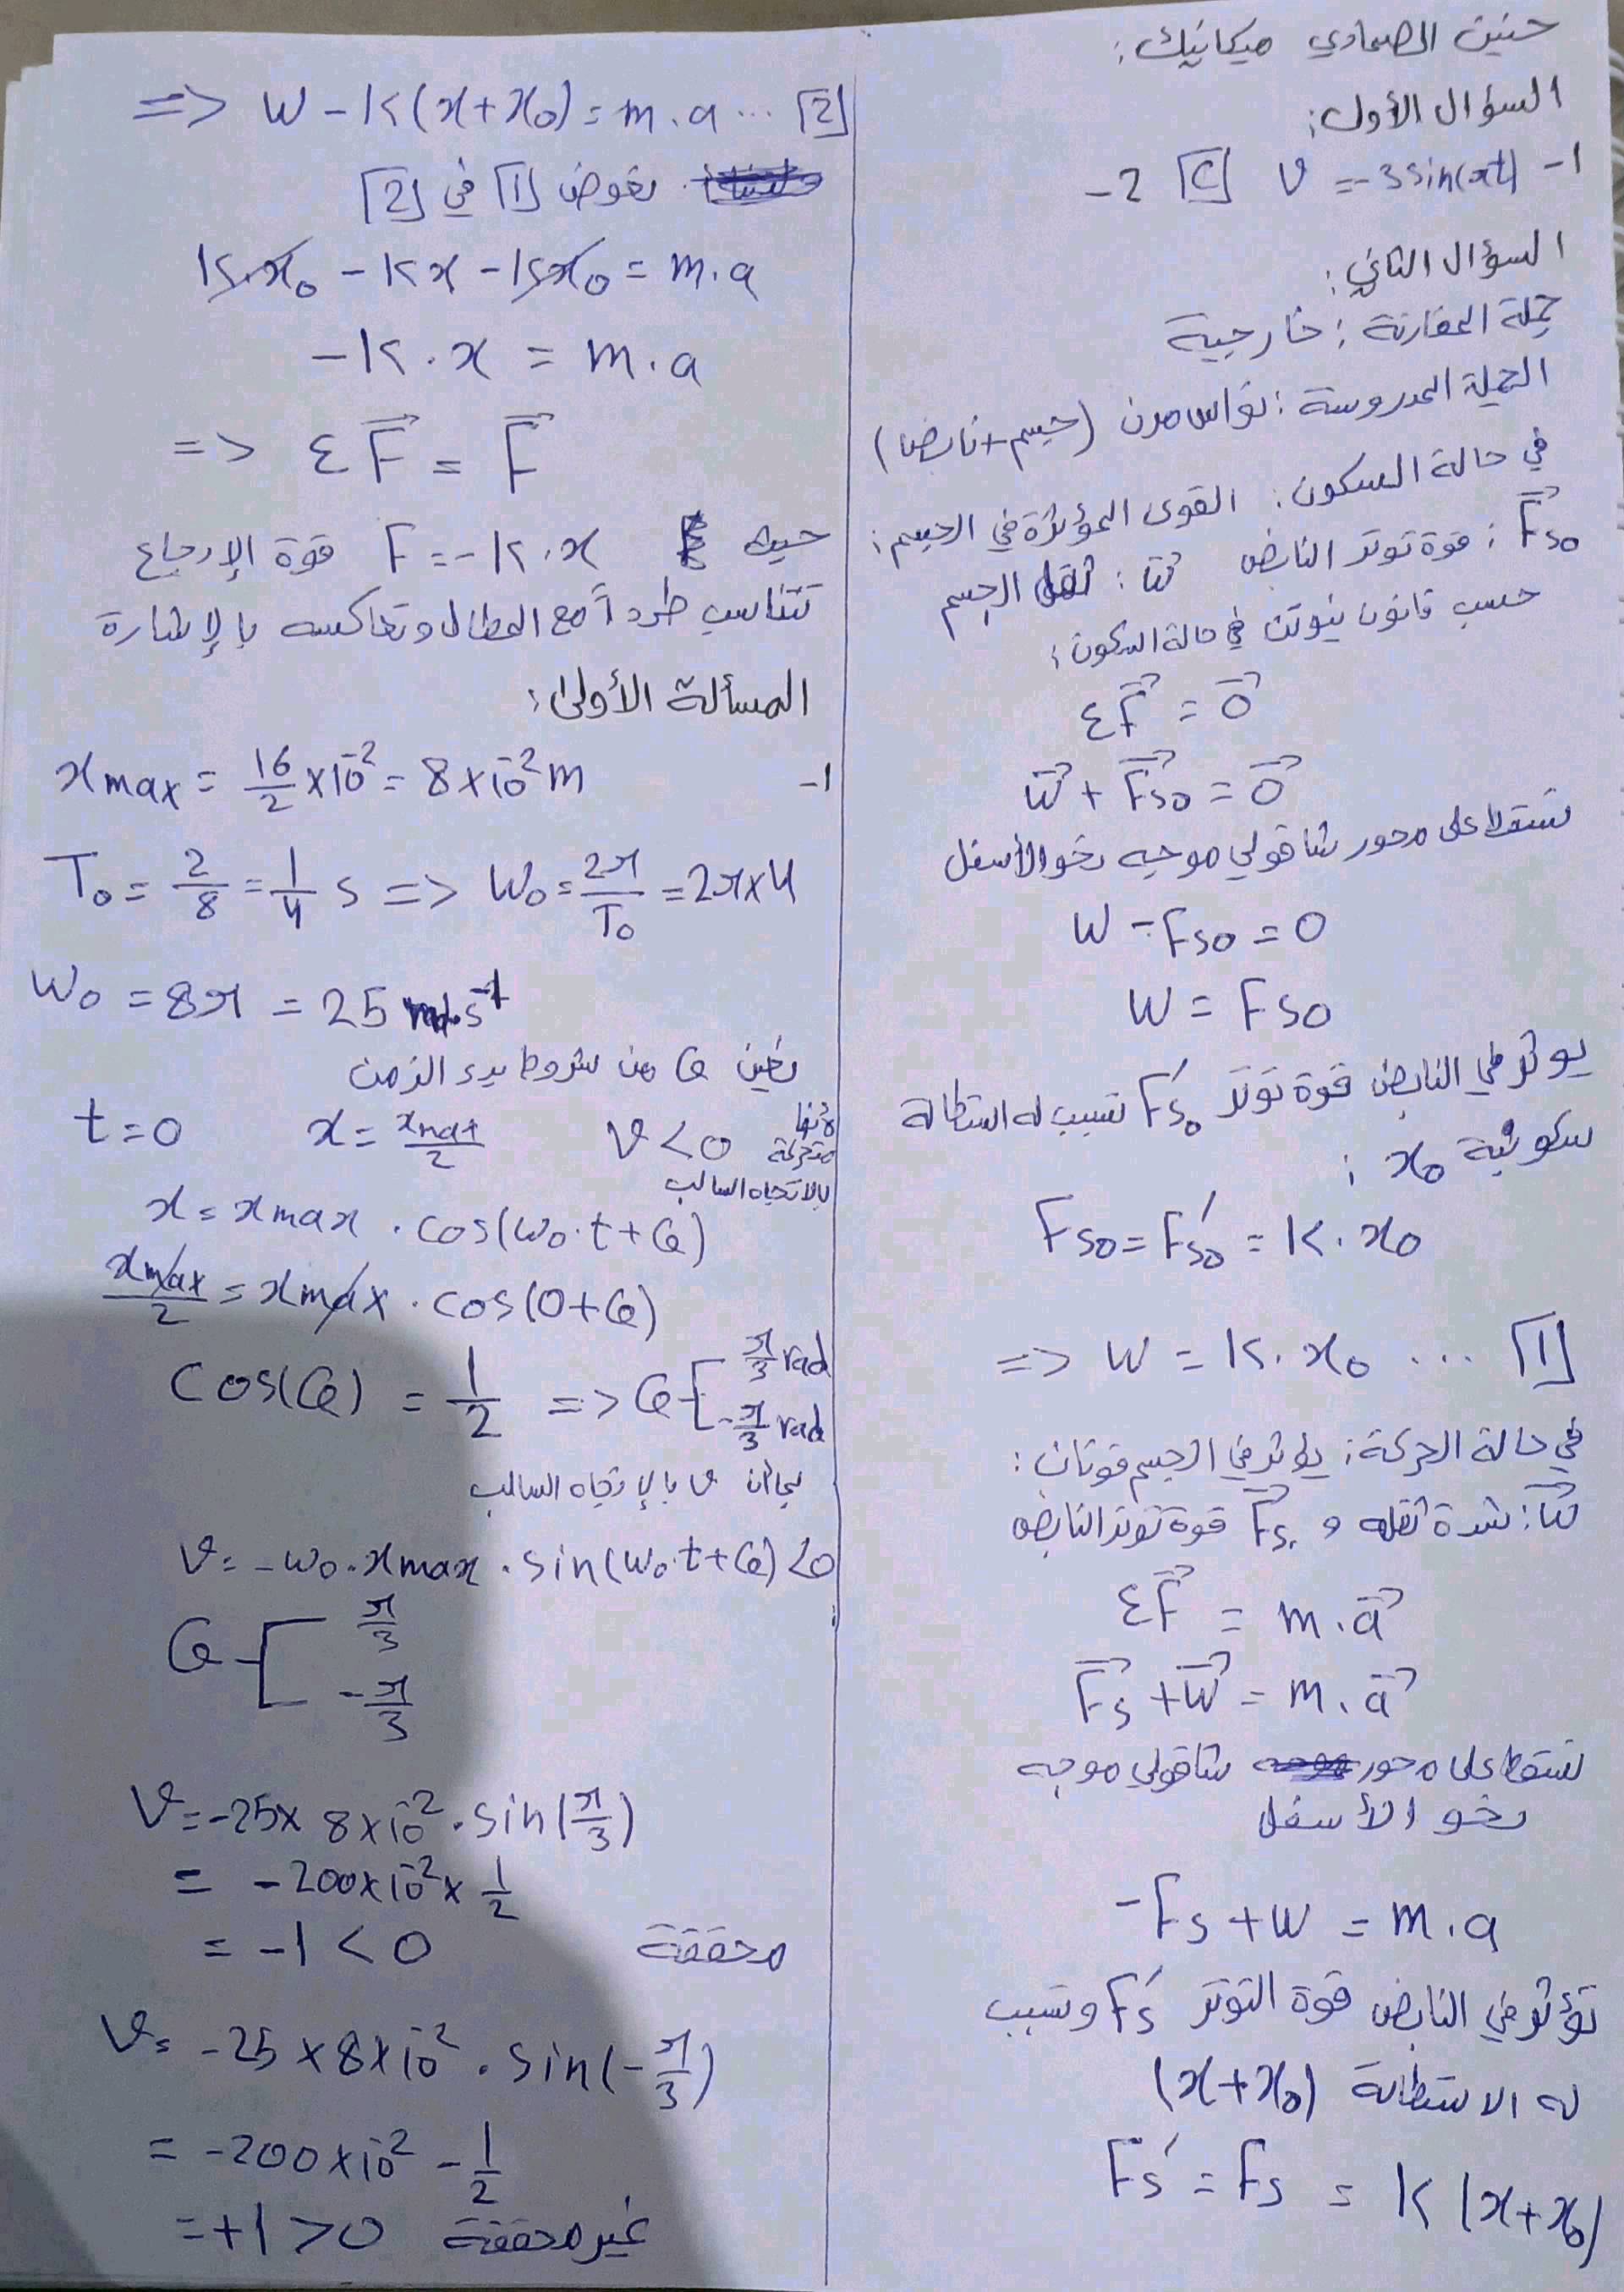 حنين الصمادي ميكانيك:
السؤال الأول:
1- v = -3sin(πt) 2- [C]
السؤال الثاني:
جملة المقارنة: خارجية
الجملة المدروسة: نواس مرن (جسم + نابض)
في حالة السكون: القوى المؤثرة في الجسم:
F⃗s0: قوة توتر النابض W⃗: ثقل الجسم
حسب قانون نيوتن في حالة السكون:
ΣF⃗ = 0⃗
W⃗ + F⃗s0 = 0⃗
نسقط على محور شاقولي موجه نحو الأسفل
W - Fs0 = 0
W = Fs0
يؤثر في النابض قوة توتر F's0 تسبب له استطالة
سكونية x0:
Fs0 = F's0 = K.x0
=> W = K.x0 ... [1]
في حالة الحركة: يؤثر في الجسم قوتان:
W⃗: شدة ثقله و F⃗s قوة توتر النابض
ΣF⃗ = m.a⃗
F⃗s + W⃗ = m.a⃗
نسقط على محور شاقولي موجه
نحو الأسفل
-Fs + W = m.a
تؤثر في النابض قوة التوتر F's وتسبب
له الاستطالة (x+x0)
F's = Fs = K(x+x0)
=> W - K(x+x0) = m.a ... [2]
نعوض [1] في [2]
K.x0 - Kx - Kx0 = m.a
-K.x = m.a
=> ΣF⃗ = F⃗
حيث F = -K.x قوة الإرجاع
تتناسب طرداً مع المطال وتعاكسه بالإشارة
المسألة الأولى:
1- xmax = 16/2 ×10⁻² = 8×10⁻² m
T0 = 2/8 = 1/4 s => ω0 = 2π/T0 = 2π×4
ω0 = 8π = 25 rad.s⁻¹
نعين φ من شروط بدء الزمن
t=0 x = xmax/2 v<0 لأنها متحركة
بالاتجاه السالب
x = xmax . cos(ω0.t+φ)
xmax/2 = xmax . cos(0+φ)
cos(φ) = 1/2 => φ [ π/3 rad
-π/3 rad
بما أن v بالإتجاه السالب
v = -ω0.xmax . sin(ω0.t+φ) <0
φ [ π/3
-π/3
v = -25× 8×10⁻² . sin(π/3)
= -200×10⁻² × 1/2
= -1 < 0 محققة
v = -25×8×10⁻² . sin(-π/3)
= -200×10⁻² - 1/2
= +1 >0 غير محققة